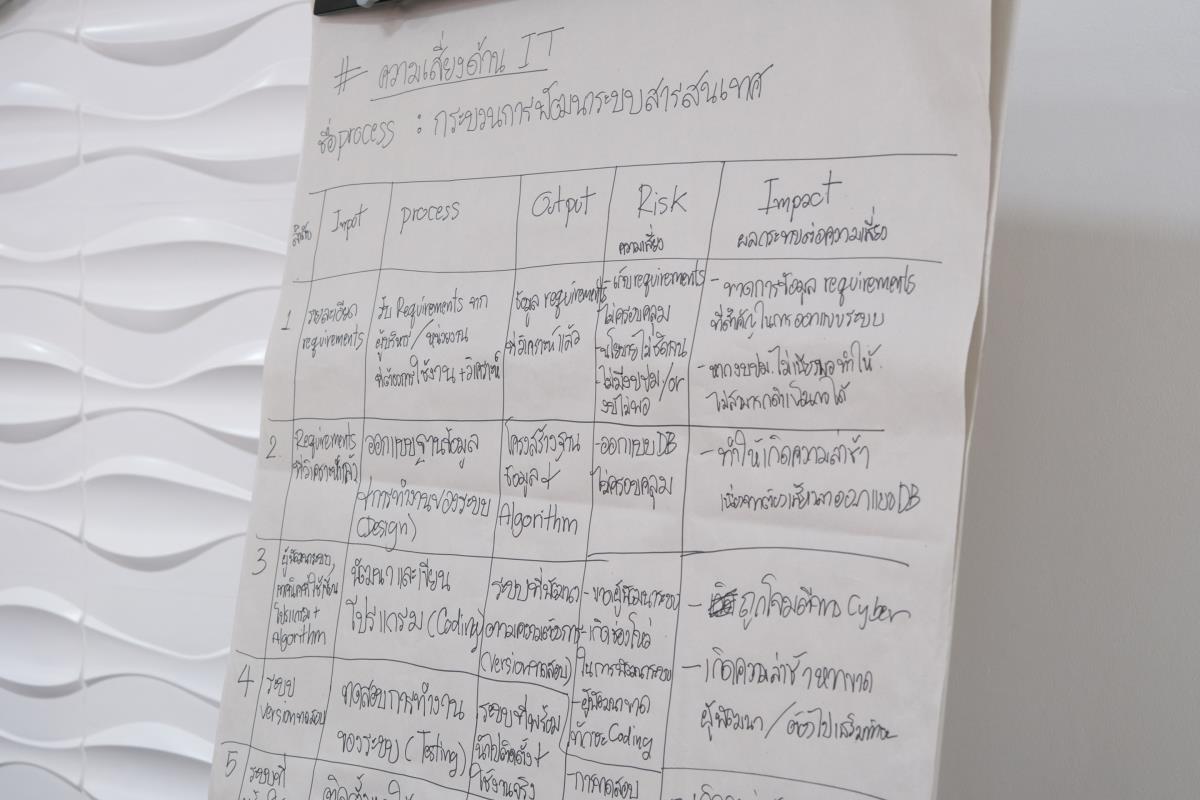 # ความเสี่ยงด้าน IT
ชื่อ process : กระบวนการพัฒนาระบบสารสนเทศ
ลำดับ Input process Output Risk Impact
ความเสี่ยง ผลกระทบต่อความเสี่ยง
1
รายละเอียด
requirements
รับ Requirements จาก
ผู้บริหาร/หน่วยงาน
ที่ต้องการใช้งาน + วิเคราะห์
ข้อมูล requirements
ที่วิเคราะห์แล้ว
- เก็บ requirements
ไม่ครอบคลุม
- นโยบายไม่ชัดเจน
- ไม่มีงบปม/or
งบไม่พอ
- ขาดการข้อมูล requirements
ที่สำคัญในการออกแบบระบบ
- หากงบปม.ไม่เพียงพอทำให้
ไม่สามารถดำเนินการได้
2
Requirements
ที่วิเคราะห์แล้ว
ออกแบบฐานข้อมูล
+การทำงานของระบบ
(Design)
โครงสร้างฐาน
ข้อมูล +
Algorithm
- ออกแบบ DB
ไม่ครอบคลุม
- ทำให้เกิดความล่าช้า
เนื่องจากต้องเสียเวลาออกแบบ DB
3
ผู้พัฒนาระบบ,
โปรแกรม +
Algorithm
พัฒนาและเขียน
โปรแกรม (Coding)
ระบบที่พัฒนา
ตามความต้องการ
(versionทดสอบ)
- ขาดผู้พัฒนาระบบ
- เกิดช่องโหว่
ในการพัฒนาระบบ
- ผู้พัฒนาขาด
ทักษะ Coding
- ถูกโจมตีทาง Cyber
- เกิดความล่าช้าหากขาด
ผู้พัฒนา/
4
ระบบ
versionทดสอบ
ทดสอบการทำงาน
ของระบบ (Testing)
ระบบที่พร้อม
นำไปติดตั้ง +
ใช้งานจริง
- การทดสอบ
5
ระบบที่